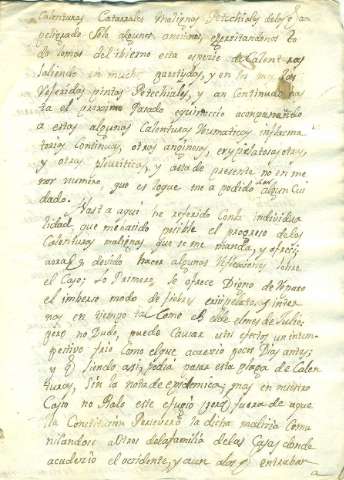 Calenturas Catarrales Malignas Petechiales de los q.e an
peligrado solo algunos ancianos
do lo mas del ibierno esta especie de Calenturas
saliendo en muchos garrotillos, y en los mas las
referidas pintas Petechiales, y an continuado has
ta el proximo pasado equinoccio acompanando
a estas algunas Calenturas Reumaticas inflama
torias Continuas, otras anginosas, erysipelatosas etz.
y otras pleuriticas, y asta de presente no en me
nor numero, que es lo que me a podido dar algun Cui
dado.
Hasta aqui he referido Con la individua
lidad que me ha sido posible el progreso de las
Calenturas malignas que se me manda, y
devido hacer algunas reflexiones sobre
el Caso; lo Primero, se ofrece Digno de
el modo de
no en tiempo tal Como el de el mes de Julio;
pero no Dudo, puede Causar este efecto un intem
pestivo frio Como el que acaecio pocos Dias antes;
y siendo asi, podia pasar esta plaga de Calen
turas, Sin la nota de epidemica; mas en nuestro
Caso no Vale este efugio fuera de aque
lla Constitucion Persevero la dicha malicia Comu
nicandose a otros de la familia de las Casas donde
acaecio el accidente, y aun a los q.e entraban
a